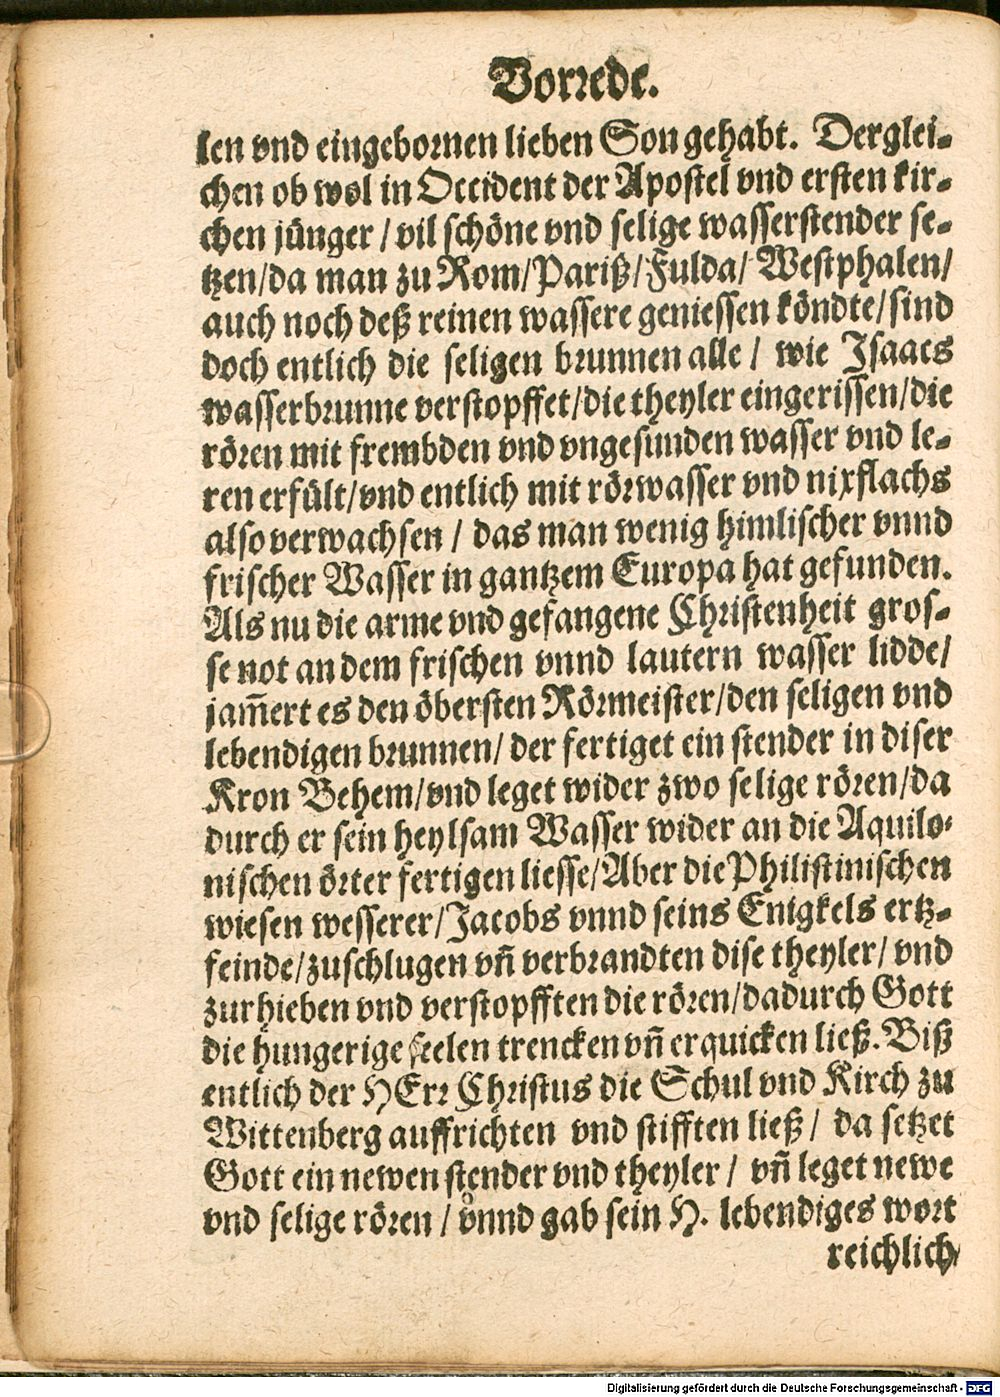 Vorrede.
len vnd eingebornen lieben Son gehabt. Derglei-
chen ob wol in Occident der Apostel vnd ersten kir-
chen jünger / vil schöne vnd selige wasserstender se-
tzen/da man zu Rom/Pariß/Fulda/ Westphalen/
auch noch deß reinen wassere geniessen köndte/sind
doch entlich die seligen brunnen alle / wie Isaacs
wasserbrunne verstopffet/die theyler eingerissen/die
rören mit frembden vnd vngesunden wasser vnd le-
ren erfült/vnd entlich mit rörwasser vnd nixflachs
also verwachsen / das man wenig himlischer vnnd
frischer Wasser in gantzem Europa hat gefunden.
Als nu die arme vnd gefangene Christenheit gros-
se not an dem frischen vnnd lautern wasser lidde/
jam̃ert es den öbersten Rörmeister/den seligen vnd
lebendigen brunnen/ der fertiget ein stender in diser
Kron Behem/vnd leget wider zwo selige rören/da
durch er sein heylsam Wasser wider an die Aquilo-
nischen örter fertigen liesse/Aber die Philistinischen
wiesen wesserer/Jacobs vnnd seins Enigkels ertz-
feinde/zuschlugen vñ verbrandten dise theyler/ vnd
zurhieben vnd verstopfften die rören/dadurch Gott
die hungerige seelen trencken vñ erquicken ließ. Biß
entlich der HErr Christus die Schul vnd Kirch zu
Wittenberg auffrichten vnd stifften ließ / da setzet
Gott ein newen stender vnd theyler / vñ leget newe
vnd selige rören / vnnd gab sein H. lebendiges wort
reichlich/
Digitalisierung gefördert durch die Deutsche Forschungsgemeinschaft - DFG